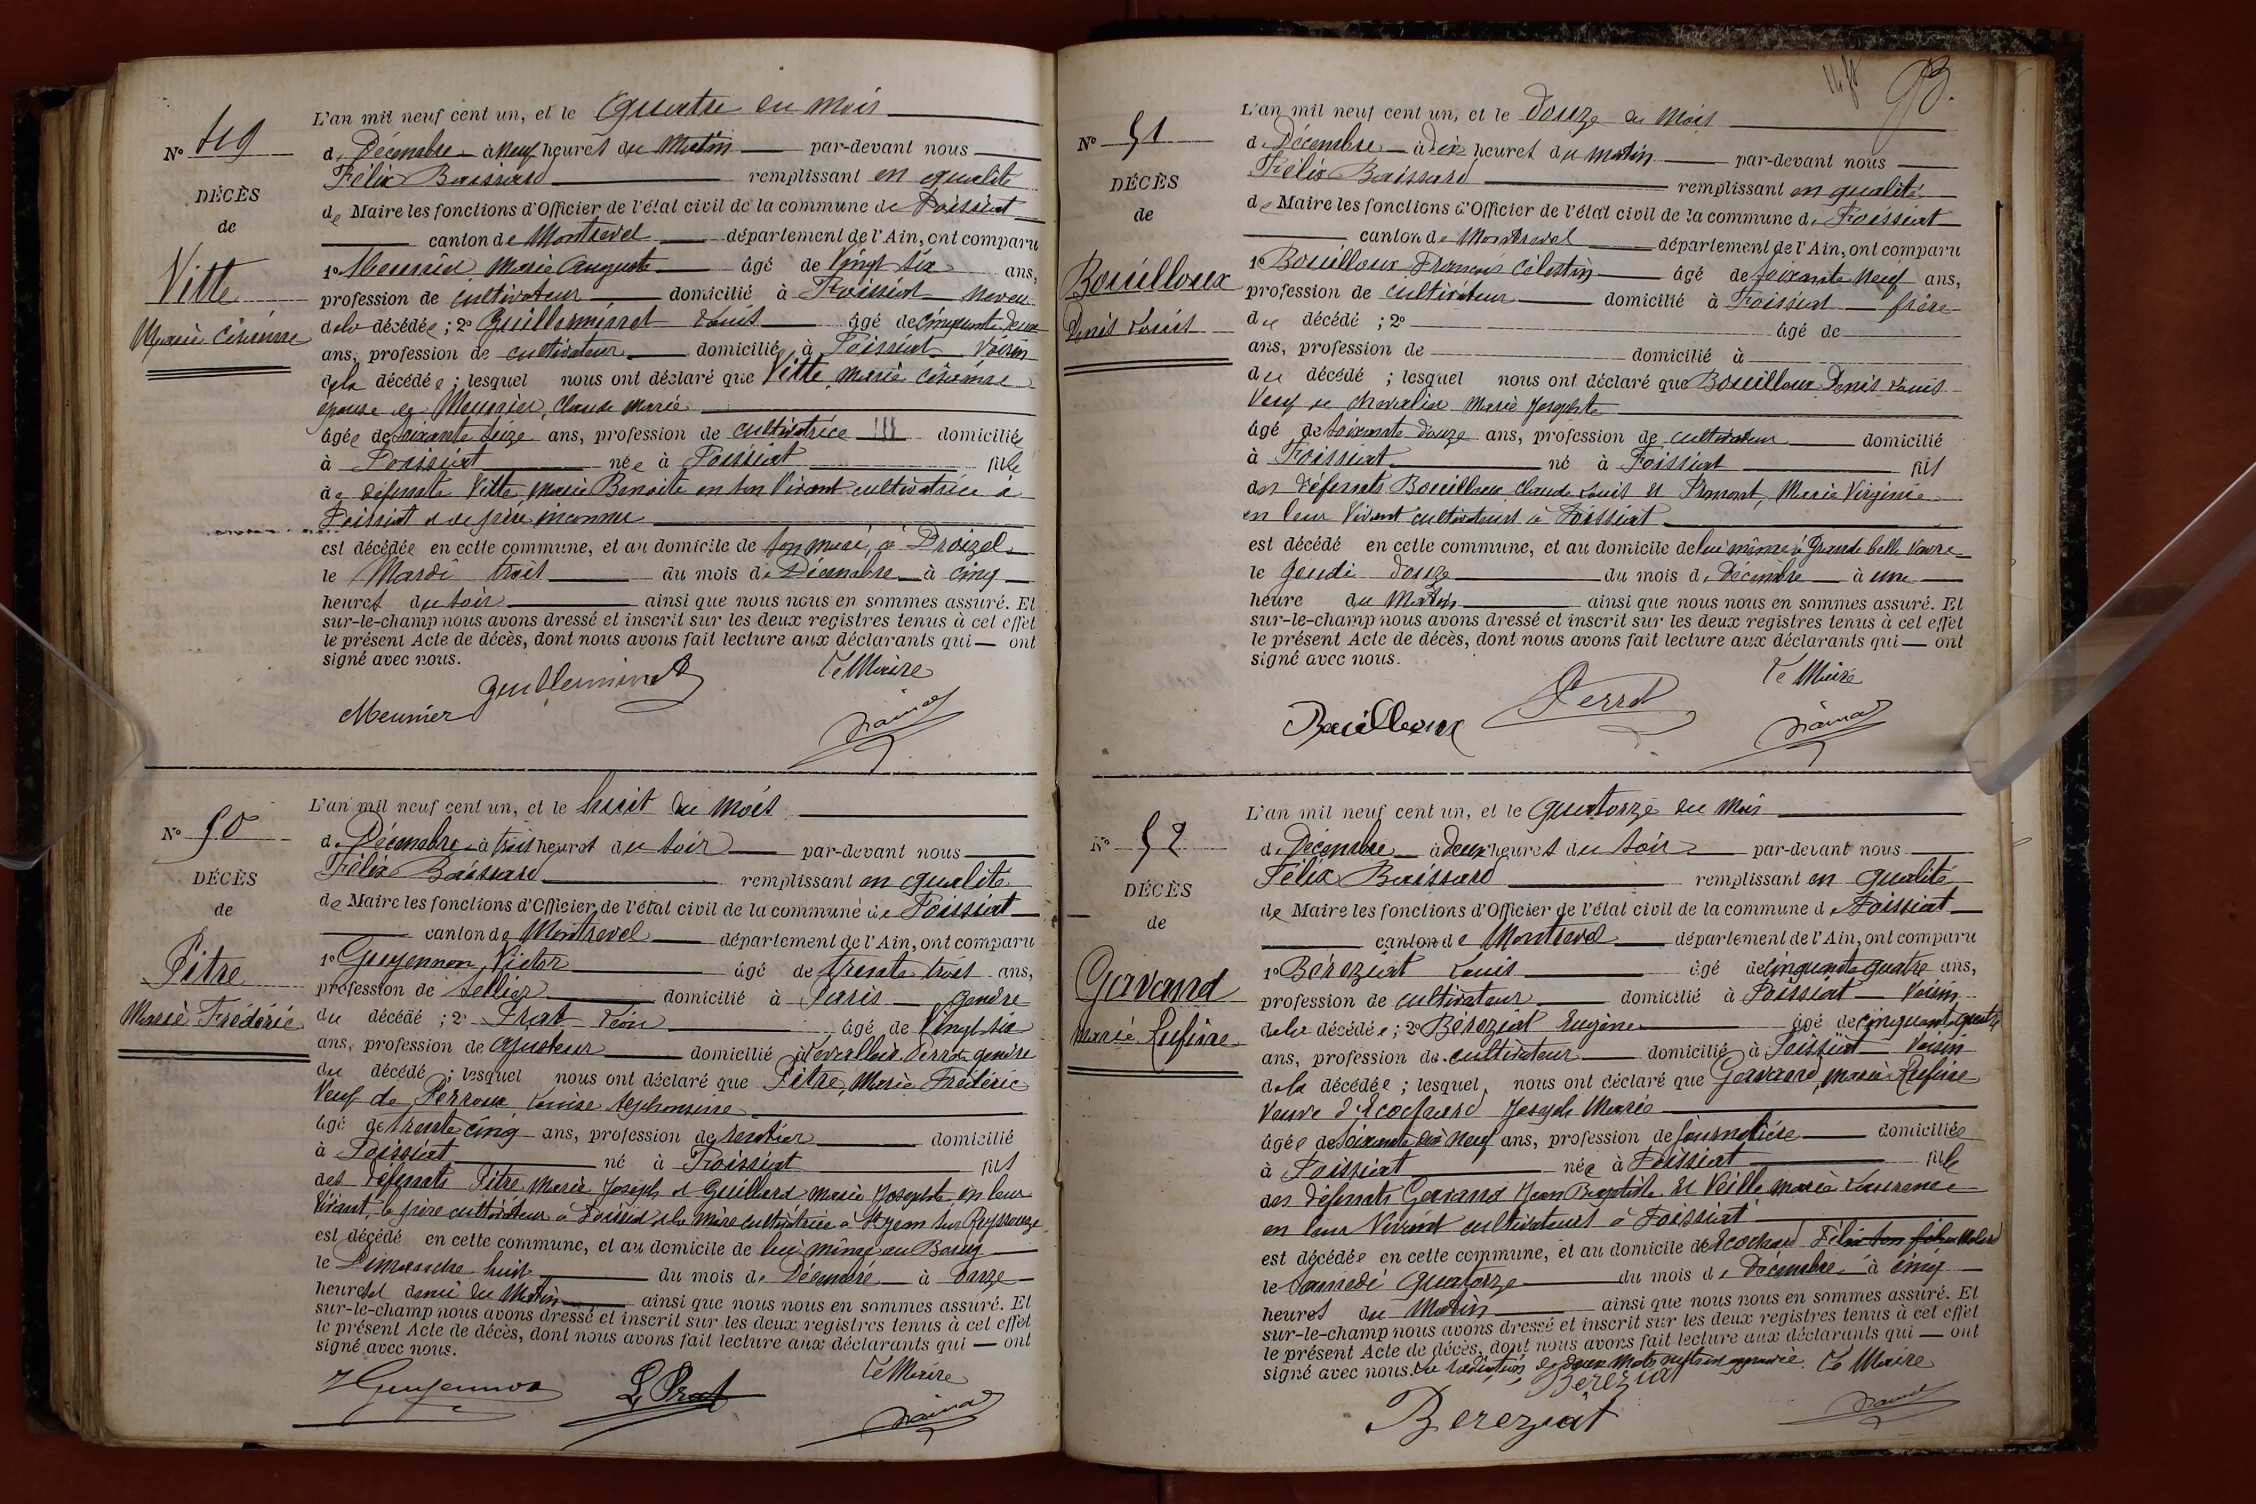 L'an mil neuf cent un, et le Quatre du mois
No 49
de Décembre à neuf heures du Matin par-devant nous
Félix Baissard remplissant en qualité
DÉCÈS
de Maire les fonctions d'Officier de l'état civil de la commune de Foissiat
de
canton de Montrevel département de l'Ain, ont comparu
Vitte
1o Meunier Marie Auguste âgé de vingt six ans,
profession de cultivateur domicilié à Foissiat neveu
Marie Césarine
de la décédée ; 2o Guillerminet Louis âgé de cinquante deux
ans, profession de cultivateur domicilié à Foissiat Voisin
de la décédée ; lesquel nous ont déclaré que Vitte Marie Césarine
épouse de Meunier, Claude Marie
âgée de soixante seize ans, profession de cultivatrice domiciliée
à Foissiat née à Foissiat fille
de défunte Vitte, Marie Benoite en son Vivant cultivatrice à
Foissiat et de père inconnu
est décédée en cette commune, et au domicile de son mari, à Proizel
le Mardi trois du mois de Décembre à cinq
heures du soir ainsi que nous nous en sommes assuré. Et
sur-le-champ nous avons dressé et inscrit sur les deux registres tenus à cet effet
le présent Acte de décès, dont nous avons fait lecture aux déclarants qui ont
signé avec nous.
Le Maire
Guillerminet
Meunier
L'an mil neuf cent un, et le huit du mois
No 50
de Décembre à trois heures du soir par-devant nous
Félix Baissard remplissant en qualité
DÉCÈS
de Maire les fonctions d'Officier de l'état civil de la commune de Foissiat
de
canton de Montrevel département de l'Ain, ont comparu
Pitre
1o Guyennon, Victor âgé de trente trois ans,
profession de sellier domicilié à Paris gendre
Marie Frédéric
du décédé ; 2o Prat Léon âgé de vingt six
ans, profession de ajusteur domicilié à Levallois Perret gendre
du décédé ; lesquel nous ont déclaré que Pitre, Marie Frédéric
Veuf de Perroux Louise Alphonsine
âgé de trente cinq ans, profession de rentier domicilié
à Foissiat né à Foissiat fils
des défunts Pitre Marie Joseph et Guillard Marie Josephte, en leur
Vivant, le père cultivateur à Foissiat et la mère cultivatrice à St Jean sur Reyssouze
est décédé en cette commune, et au domicile de lui même au Bourg
le Dimanche huit du mois de Décembre à onze
heures et demi du Matin ainsi que nous nous en sommes assuré. Et
sur-le-champ nous avons dressé et inscrit sur les deux registres tenus à cet effet
le présent Acte de décès, dont nous avons fait lecture aux déclarants qui ont
signé avec nous.
Le Maire
Guyennon
L. Prat
L'an mil neuf cent un, et le douze du mois
No 51
de Décembre à dix heures du matin par-devant nous
Félix Baissard remplissant en qualité
DÉCÈS
de Maire les fonctions d'Officier de l'état civil de la commune de Foissiat
de
canton de Montrevel département de l'Ain, ont comparu
Bouilloux
1o Bouilloux François Célestin âgé de soixante neuf ans,
profession de cultivateur domicilié à Foissiat frère
Denis Louis
du décédé ; 2o âgé de
ans, profession de domicilié à
du décédé ; lesquel nous ont déclaré que Bouilloux Denis Louis
Veuf de Chevalier Marie Josephte
âgé de soixante douze ans, profession de cultivateur domicilié
à Foissiat né à Foissiat fils
des défunts Bouilloux Claude Louis et Promont, Marie Virginie
en leur Vivant cultivateurs à Foissiat
est décédé en cette commune, et au domicile de lui même à Grande belle Vavre
le Jeudi douze du mois de Décembre à une
heure du Matin ainsi que nous nous en sommes assuré. Et
sur-le-champ nous avons dressé et inscrit sur les deux registres tenus à cet effet
le présent Acte de décès, dont nous avons fait lecture aux déclarants qui ont
signé avec nous.
Le Maire
Bouilloux
Perret
L'an mil neuf cent un, et le quatorze du mois
No 52
de Décembre à deux heures du soir par-devant nous
Félix Baissard remplissant en qualité
DÉCÈS
de Maire les fonctions d'Officier de l'état civil de la commune de Foissiat
de
canton de Montrevel département de l'Ain, ont comparu
Gavand
1o Béréziat Louis âgé de cinquante quatre ans,
profession de cultivateur domicilié à Foissiat Voisin
Marie Rufine
de la décédée ; 2o Béréziat Eugène âgé de cinquante quatre
ans, profession de cultivateur domicilié à Foissiat Voisin
de la décédée ; lesquel nous ont déclaré que Gavand, Marie Rufine
Veuve d'Ecochard Joseph Marie
âgée de soixante dix neuf ans, profession de journalière domiciliée
à Foissiat née à Foissiat fille
des défunts Gavand Jean Baptiste et Veille Marie Laurence
en leur Vivant cultivateurs à Foissiat
est décédée en cette commune, et au domicile de Ecochard Félix son
le Samedi quatorze du mois de Décembre à cinq
heures du Matin ainsi que nous nous en sommes assuré. Et
sur-le-champ nous avons dressé et inscrit sur les deux registres tenus à cet effet
le présent Acte de décès, dont nous avons fait lecture aux déclarants qui ont
signé avec nous. La radiation de deux mots approuvée. Le Maire
Béréziat
Bereziat